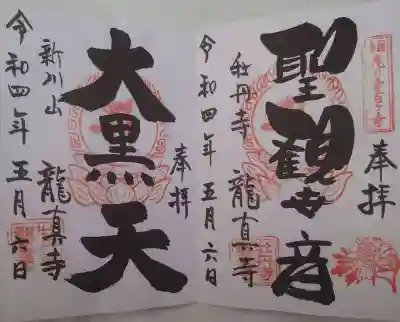 奉拝
聖観世音
牡丹寺 龍真寺
令和四年五月六日
奉拝
大黒天
新川山 龍真寺
令和四年五月六日